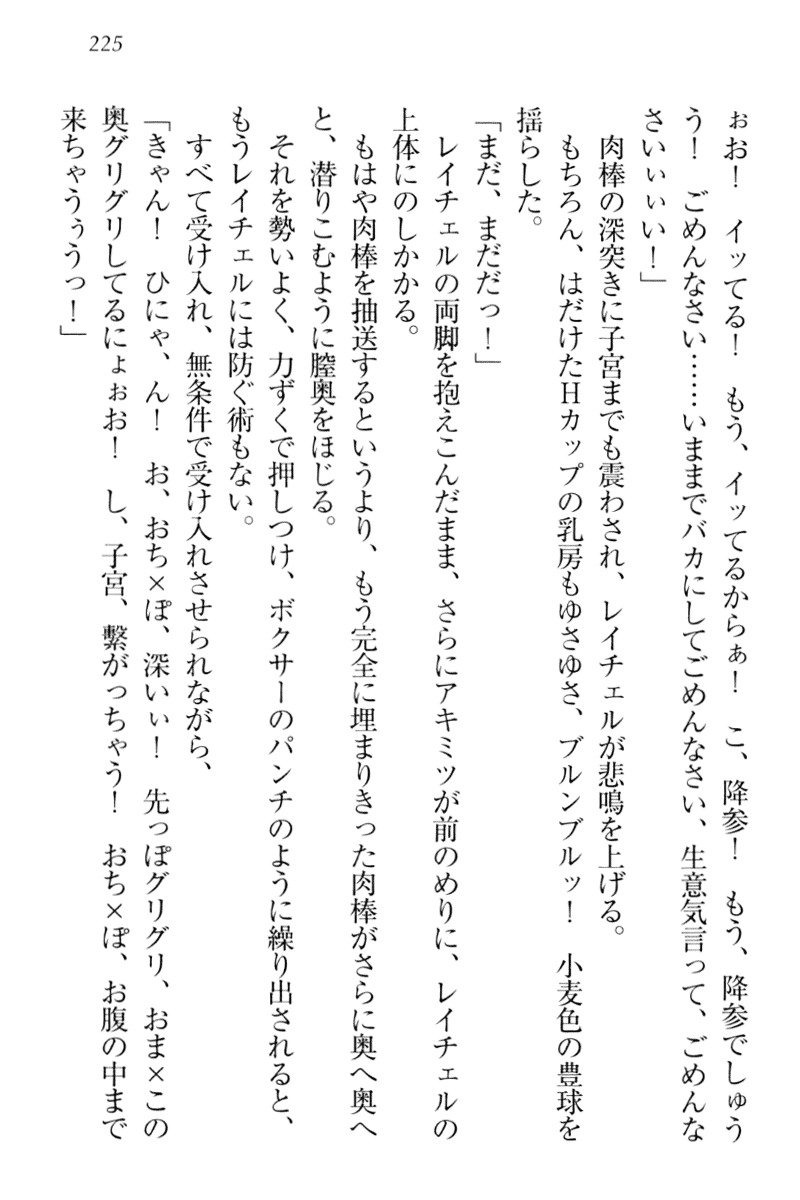 225
ぉお！　イッてる！　もう、イッてるからぁ！　こ、降参！　もう、降参でしゅう
う！　ごめんなさい……いままでバカにしてごめんなさい、生意気言って、ごめんな
さいぃぃい！」
　肉棒の深突きに子宮までも震わされ、レイチェルが悲鳴を上げる。
　もちろん、はだけたＨカップの乳房もゆさゆさ、ブルンブルッ！　小麦色の豊球を
揺らした。
「まだ、まだだっ！」
　レイチェルの両脚を抱えこんだまま、さらにアキミツが前のめりに、レイチェルの
上体にのしかかる。
　もはや肉棒を抽送するというより、もう完全に埋まりきった肉棒がさらに奥へ奥へ
と、潜りこむように膣奥をほじる。
　それを勢いよく、力ずくで押しつけ、ボクサーのパンチのように繰り出されると、
もうレイチェルには防ぐ術もない。
　すべて受け入れ、無条件で受け入れさせられながら、
「きゃん！　ひにゃ、ん！　お、おち×ぽ、深いぃ！　先っぽグリグリ、おま×この
奥グリグリしてるにょぉお！　し、子宮、繋がっちゃう！　おち×ぽ、お腹の中まで
来ちゃうぅうっ！」